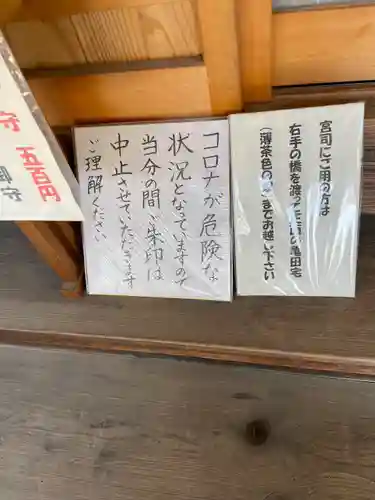 宮司にご用の方は
右手の橋を渡った左の亀田宅
まで お越し下さい
コロナが危険な
状況となってますので
当分の間ご朱印は
中止させていただきます
ご理解ください
守 五百円
御守